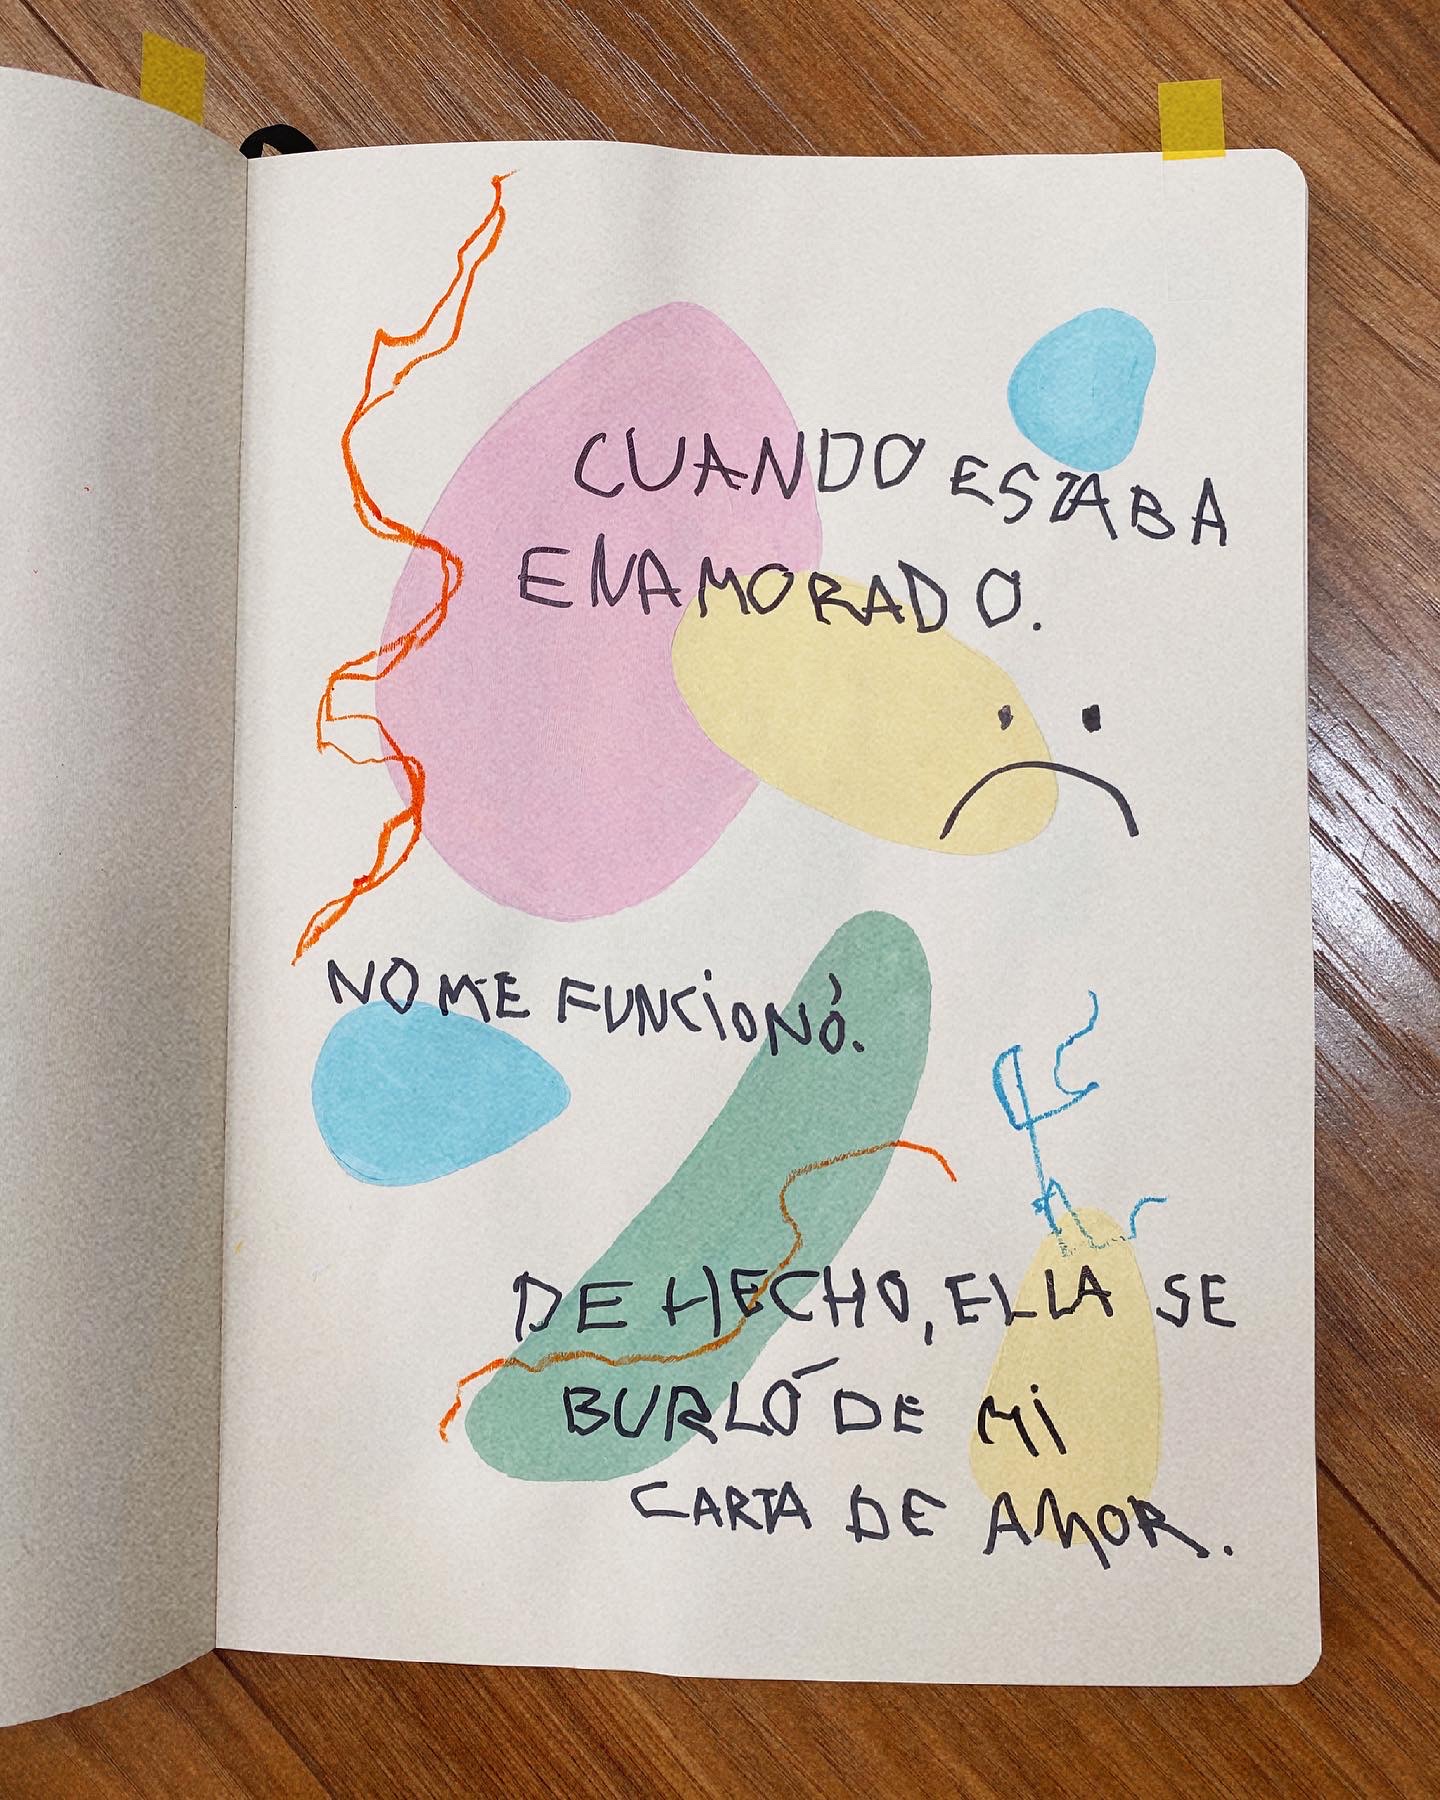 CUANDO ESTABA
ENAMORADO.
NO ME FUNCIONÓ.
DE HECHO, ELLA SE
BURLÓ DE MI
CARTA DE AMOR.